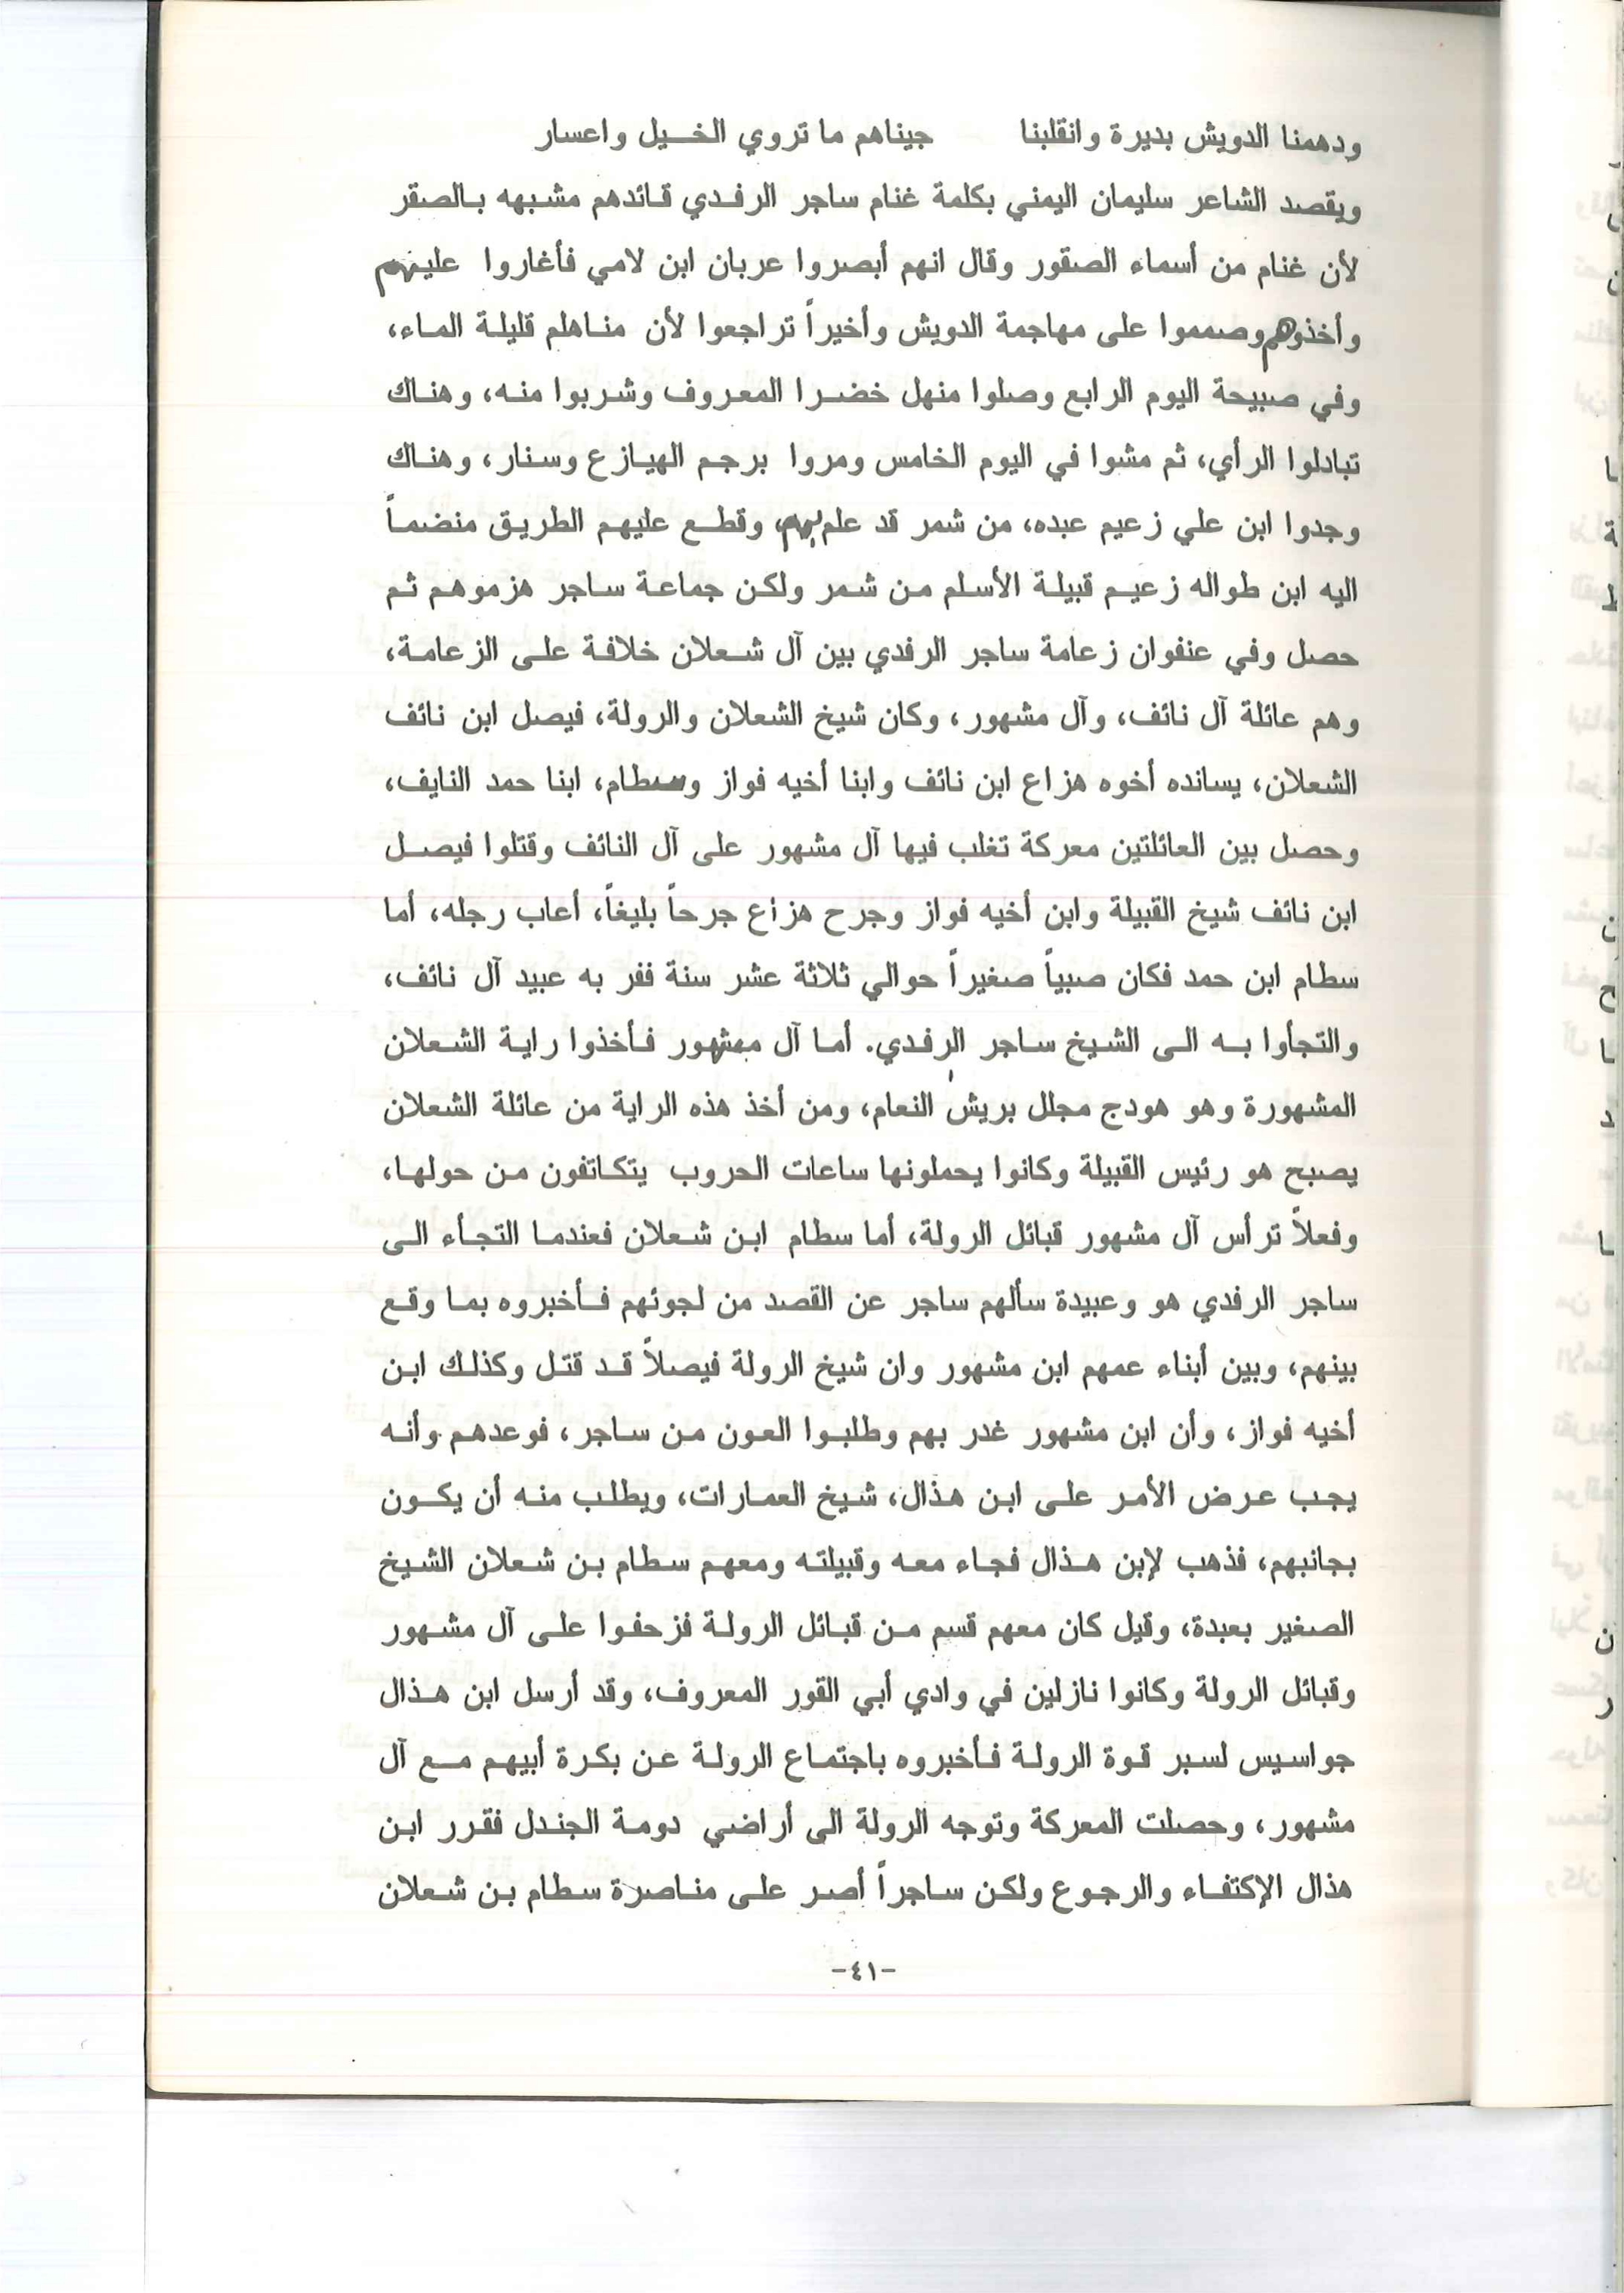 ودهمنا الدويش بديرة وانقلبنا جيناهم ما تروي الخيل واعسار
ويقصد الشاعر سليمان اليمني بكلمة غنام ساجر الرفدي قائدهم مشبهه بالصقر
لأن غنام من أسماء الصقور وقال انهم أبصروا عربان ابن لامي فأغاروا عليهم
وأخذوهم وصمموا على مهاجمة الدويش وأخيراً تراجعوا لأن مناهلم قليلة الماء،
وفي صبيحة اليوم الرابع وصلوا منهل خضرا المعروف وشربوا منه، وهناك
تبادلوا الرأي، ثم مشوا في اليوم الخامس ومروا برجم الهيازع وسنار، وهناك
وجدوا ابن علي زعيم عبده، من شمر قد علم بهم، وقطع عليهم الطريق منضماً
اليه ابن طواله زعيم قبيلة الأسلم من شمر ولكن جماعة ساجر هزموهم ثم
حصل وفي عنفوان زعامة ساجر الرفدي بين آل شعلان خلافة على الزعامة،
وهم عائلة آل نائف، وآل مشهور، وكان شيخ الشعلان والرولة، فيصل ابن نائف
الشعلان، يسانده أخوه هزاع ابن نائف وابنا أخيه فواز وسطام، ابنا حمد النايف،
وحصل بين العائلتين معركة تغلب فيها آل مشهور على آل النائف وقتلوا فيصل
ابن نائف شيخ القبيلة وابن أخيه فواز وجرح هزاع جرحاً بليغاً، أعاب رجله، أما
سطام ابن حمد فكان صبياً صغيراً حوالي ثلاثة عشر سنة ففر به عبيد آل نائف،
والتجأوا به الى الشيخ ساجر الرفدي. أما آل مشهور فأخذوا راية الشعلان
المشهورة وهو هودج مجلل بريش النعام، ومن أخذ هذه الراية من عائلة الشعلان
يصبح هو رئيس القبيلة وكانوا يحملونها ساعات الحروب يتكاتفون من حولها،
وفعلاً ترأس آل مشهور قبائل الرولة، أما سطام ابن شعلان فعندما التجأء الى
ساجر الرفدي هو وعبيدة سألهم ساجر عن القصد من لجوئهم فأخبروه بما وقع
بينهم، وبين أبناء عمهم ابن مشهور وان شيخ الرولة فيصلاً قد قتل وكذلك ابن
أخيه فواز، وأن ابن مشهور غدر بهم وطلبوا العون من ساجر، فوعدهم وأنه
يجب عرض الأمر على ابن هذال، شيخ العمارات، ويطلب منه أن يكون
بجانبهم، فذهب لإبن هذال فجاء معه وقبيلته ومعهم سطام بن شعلان الشيخ
الصغير بعبدة، وقيل كان معهم قسم من قبائل الرولة فزحفوا على آل مشهور
وقبائل الرولة وكانوا نازلين في وادي أبي القور المعروف، وقد أرسل ابن هذال
جواسيس لسبر قوة الرولة فأخبروه باجتماع الرولة عن بكرة أبيهم مع آل
مشهور، وحصلت المعركة وتوجه الرولة الى أراضي دومة الجندل فقرر ابن
هذال الإكتفاء والرجوع ولكن ساجراً أصر على مناصرة سطام بن شعلان
-٤١-